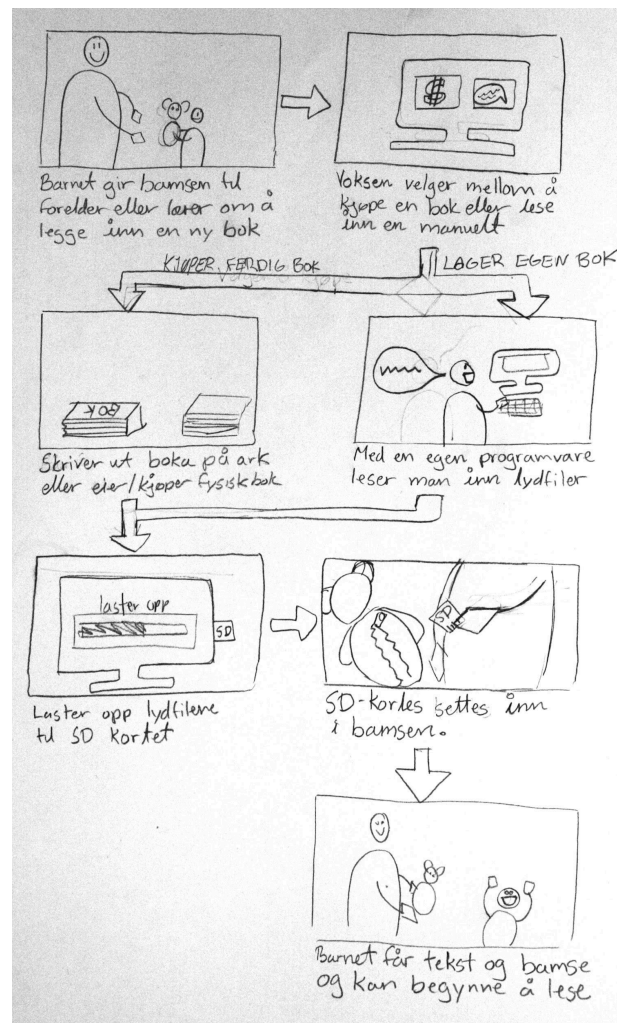 Barnet gir bamsen til
forelder eller lærer om å
legge inn en ny bok
$
Voksen velger mellom å
kjøpe en bok eller lese
inn en manuelt
KJØPER FERDIG BOK
LAGER EGEN BOK
BOK
Skriver ut boka på ark
eller eier/kjøper fysisk bok
Med en egen programvare
leser man inn lydfiler
laster opp
SD
Laster opp lydfilene
til SD kortet
SD
SD-kortes settes inn
i bamsen.
Barnet får tekst og bamse
og kan begynne å lese